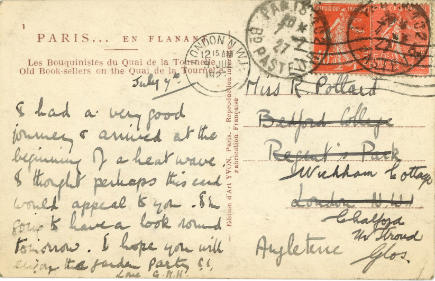 PARIS... EN FLANANT
Les Bouquinistes du Quai de la Tournelle
Old Book-sellers on the Quai de la Tournelle
July 9th
I had a very good
journey & arrived at the
beginning of a heat wave.
I thought perhaps this card
would appeal to you. I'm
going to have a look round
tomorrow. I hope you will
enjoy the garden party
Love G.R.H.
Edition d'Art YVON, Paris. Reproduction
Fabrication Française
LONDON N.W.1
12 15 AM
JUL
PARIS
27
PASTEUR
Miss R Pollard
Bedford College
Regent's Park
Wickham Cottage
London N.W.1
Chalford
Nr Stroud
Glos.
Angleterre